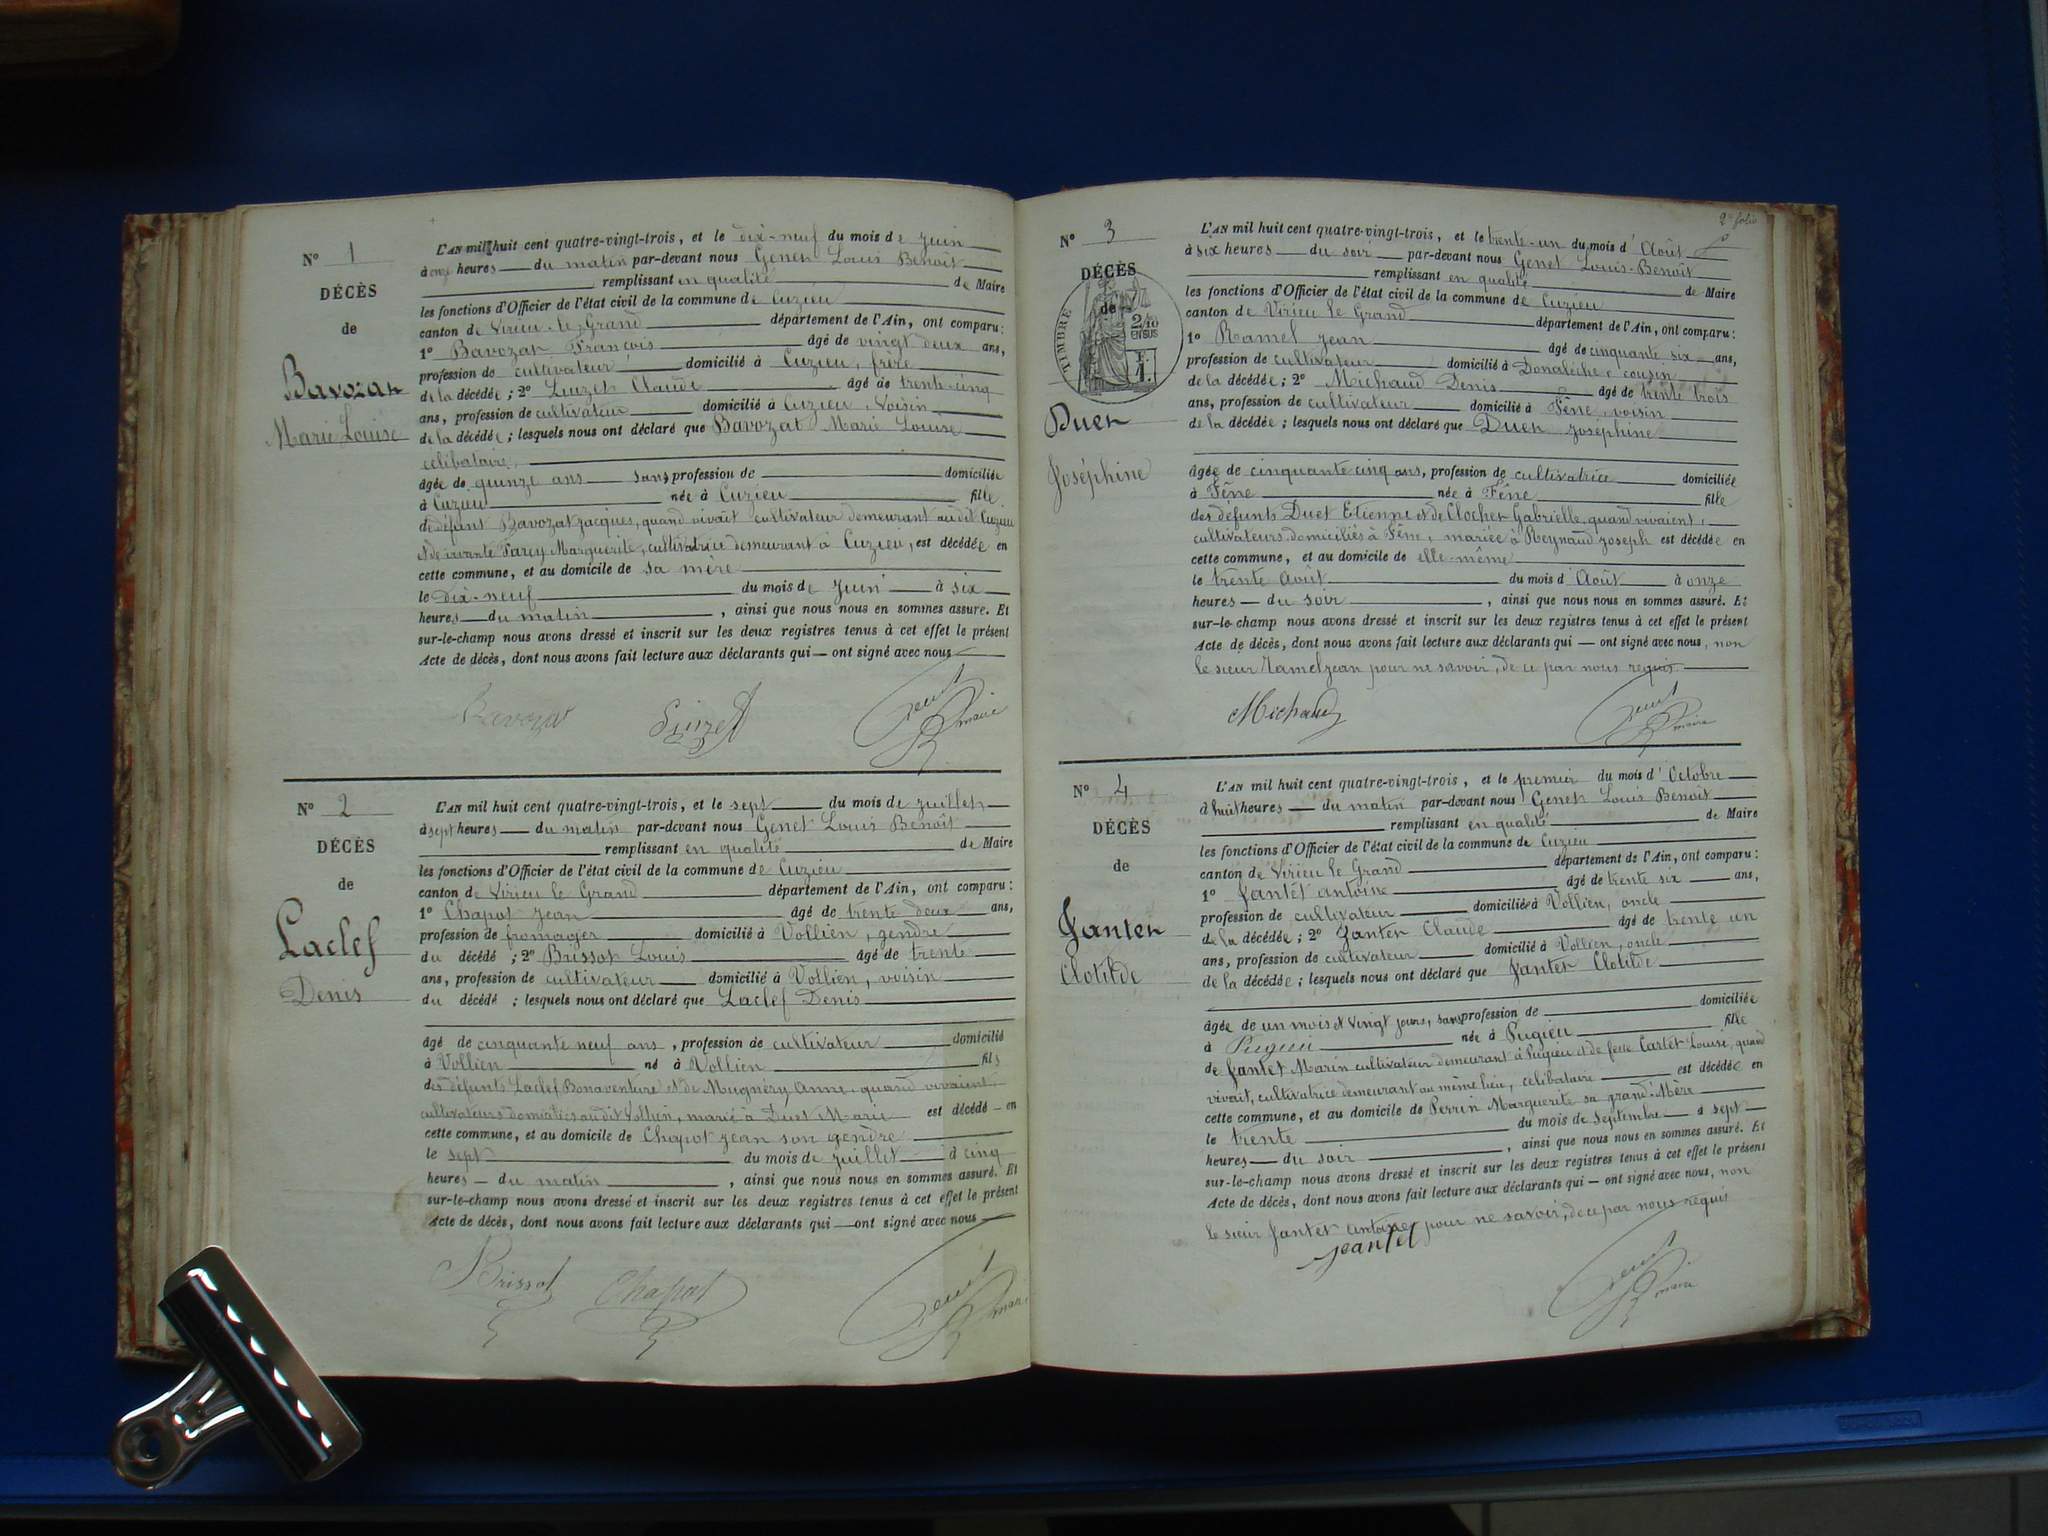 N° 1
DÉCÈS
de
Bavozat
Marie Louise
L'AN mil huit cent quatre-vingt-trois, et le dix-neuf du mois de Juin
à onze heures du matin par-devant nous Genet Louis Benoît
remplissant en qualité de Maire
les fonctions d'Officier de l'état civil de la commune de Cuzieu
canton de Virieu-le-Grand département de l'Ain, ont comparu:
1° Bavozat François âgé de vingt deux ans,
profession de cultivateur domicilié à Cuzieu, frère
de la décédée; 2° Luzet Claude âgé de trente-cinq
ans, profession de cultivateur domicilié à Cuzieu, voisin
de la décédée; lesquels nous ont déclaré que Bavozat Marie Louise
célibataire,
âgée de quinze ans sans profession de domiciliée
à Cuzieu née à Cuzieu fille
de défunt Bavozat Jacques, quand vivait cultivateur demeurant audit Cuzieu
et de vivante Marguerite, cultivatrice demeurant à Cuzieu, est décédée en
cette commune, et au domicile de sa mère
le dix-neuf du mois de Juin à six
heures du matin, ainsi que nous nous en sommes assuré. Et
sur-le-champ nous avons dressé et inscrit sur les deux registres tenus à cet effet le présent
Acte de décès, dont nous avons fait lecture aux déclarants qui — ont signé avec nous
Bavozat Luzet Genet maire
N° 2
DÉCÈS
de
Laclef
Denis
L'AN mil huit cent quatre-vingt-trois, et le sept du mois de Juillet
à sept heures du matin par-devant nous Genet Louis Benoît
remplissant en qualité de Maire
les fonctions d'Officier de l'état civil de la commune de Cuzieu
canton de Virieu le Grand département de l'Ain, ont comparu:
1° Chapot Jean âgé de trente deux ans,
profession de fromager domicilié à Vollien, gendre
du décédé; 2° Brissot Louis âgé de trente
ans, profession de cultivateur domicilié à Vollien, voisin
du décédé; lesquels nous ont déclaré que Laclef Denis
âgé de cinquante neuf ans, profession de cultivateur domicilié
à Vollien né à Vollien fils
des défunts Laclef Bonaventure et de Mugnéry Anne, quand vivaient
cultivateurs domiciliés audit Vollien, marié à Duet Marie est décédé en
cette commune, et au domicile de Chapot Jean son gendre
le sept du mois de Juillet à cinq
heures du matin, ainsi que nous nous en sommes assuré. Et
sur-le-champ nous avons dressé et inscrit sur les deux registres tenus à cet effet le présent
Acte de décès, dont nous avons fait lecture aux déclarants qui — ont signé avec nous
Brissot Chapot Genet maire
2e folio
N° 3
DÉCÈS
de
TIMBRE
2/10
EN SUS
F.
1.
Duet
Joséphine
L'AN mil huit cent quatre-vingt-trois, et le trente-un du mois d'Août
à six heures du soir par-devant nous Genet Louis-Benoît
remplissant en qualité de Maire
les fonctions d'Officier de l'état civil de la commune de Cuzieu
canton de Virieu le Grand département de l'Ain, ont comparu:
1° Ramel Jean âgé de cinquante six ans,
profession de cultivateur domicilié à cousin
de la décédée; 2° Michaud Denis âgé de trente trois
ans, profession de cultivateur domicilié à Fêne, voisin
de la décédée; lesquels nous ont déclaré que Duet Joséphine
âgée de cinquante cinq ans, profession de cultivatrice domiciliée
à Fêne née à Fêne fille
des défunts Duet Etienne et de Clochet Gabrielle, quand vivaient,
cultivateurs domiciliés à Fêne, mariée à Reynaud Joseph est décédée en
cette commune, et au domicile de elle-même
le trente Août du mois d'Août à onze
heures du soir, ainsi que nous nous en sommes assuré. Et
sur-le-champ nous avons dressé et inscrit sur les deux registres tenus à cet effet le présent
Acte de décès, dont nous avons fait lecture aux déclarants qui — ont signé avec nous, non
le sieur Ramel Jean pour ne savoir, de ce par nous requis
Michaud Genet maire
N° 4
DÉCÈS
de
Jantet
Clotilde
L'AN mil huit cent quatre-vingt-trois, et le premier du mois d'Octobre
à huit heures du matin par-devant nous Genet Louis Benoît
remplissant en qualité de Maire
les fonctions d'Officier de l'état civil de la commune de Cuzieu
canton de Virieu le Grand département de l'Ain, ont comparu:
1° Jantet Antoine âgé de trente six ans,
profession de cultivateur domicilié à Vollien, oncle
de la décédée; 2° Jantet Claude âgé de trente un
ans, profession de cultivateur domicilié à Vollien, oncle
de la décédée; lesquels nous ont déclaré que Jantet Clotilde
âgée de un mois et vingt jours, sans profession de domiciliée
à Pugieu née à Pugieu fille
de Jantet Marin cultivateur demeurant à Pugieu et de feue Carlet Louise, quand
vivait, cultivatrice demeurant au même lieu, célibataire est décédée en
cette commune, et au domicile de Perrin Marguerite sa grand'Mère
le trente du mois de Septembre à sept
heures du soir, ainsi que nous nous en sommes assuré. Et
sur-le-champ nous avons dressé et inscrit sur les deux registres tenus à cet effet le présent
Acte de décès, dont nous avons fait lecture aux déclarants qui — ont signé avec nous, non
le sieur Jantet Antoine, pour ne savoir, de ce par nous requis
Jeantet Genet maire